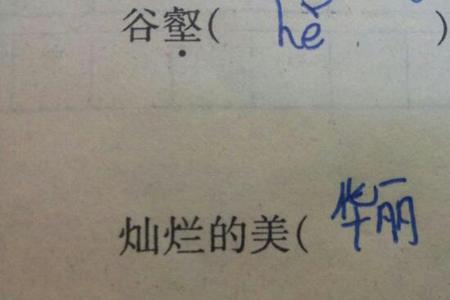 谷壑( hè )
灿烂的美( 华丽